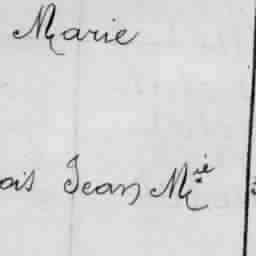 Marie
ois Jean Mie